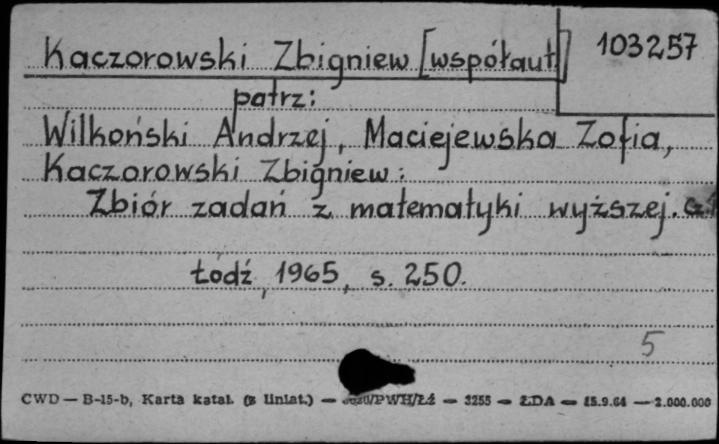 Kaczorowski Zbigniew [współaut] 103257
patrz:
Wilkoński Andrzej, Maciejewska Zofia,
Kaczorowski Zbigniew:
Zbiór zadań z matematyki wyższej. cz.1
Łódź, 1965, s. 250.
5
CWD — B-15-b, Karta katal. (z liniat.) — /PWH/Łź — 3255 — ŁDA — 15.9.64 — 2.000.000